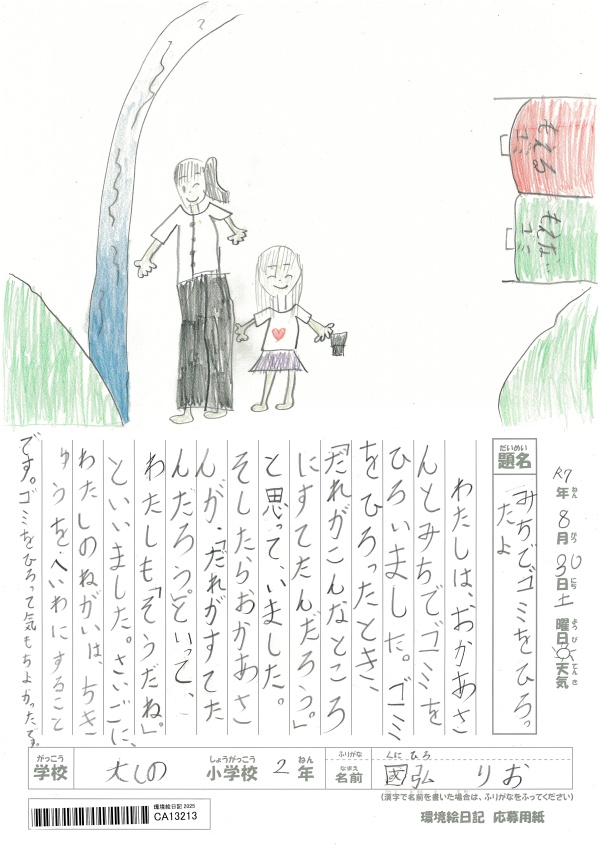 もえる
ゴミ
もえない
ゴミ
R7年8月30日土曜日 天気
ねん がつ にち ようび てんき
だいめい
題名
みちでゴミをひろっ
たよ
わたしは、おかあさ
んとみちでゴミを
ひろいました。ゴミ
をひろったとき、
「だれがこんなところ
にすてたんだろう。」
と思って、いました。
そしたらおかあさ
んが、「だれがすてた
んだろう。」といって、
わたしも「そうだね。」
といいました。さいごに、
わたしのねがいは、ちき
ゅうを、へいわにすること
です。ゴミをひろって気もちよかったです。
がっこう しょうがっこう ねん ふりがな くに ひろ
学校 大しの 小学校 2 年 なまえ 名前 國弘 りお
(漢字で名前を書いた場合は、ふりがなをふってください)
環境絵日記 2025
CA13213
環境絵日記 応募用紙